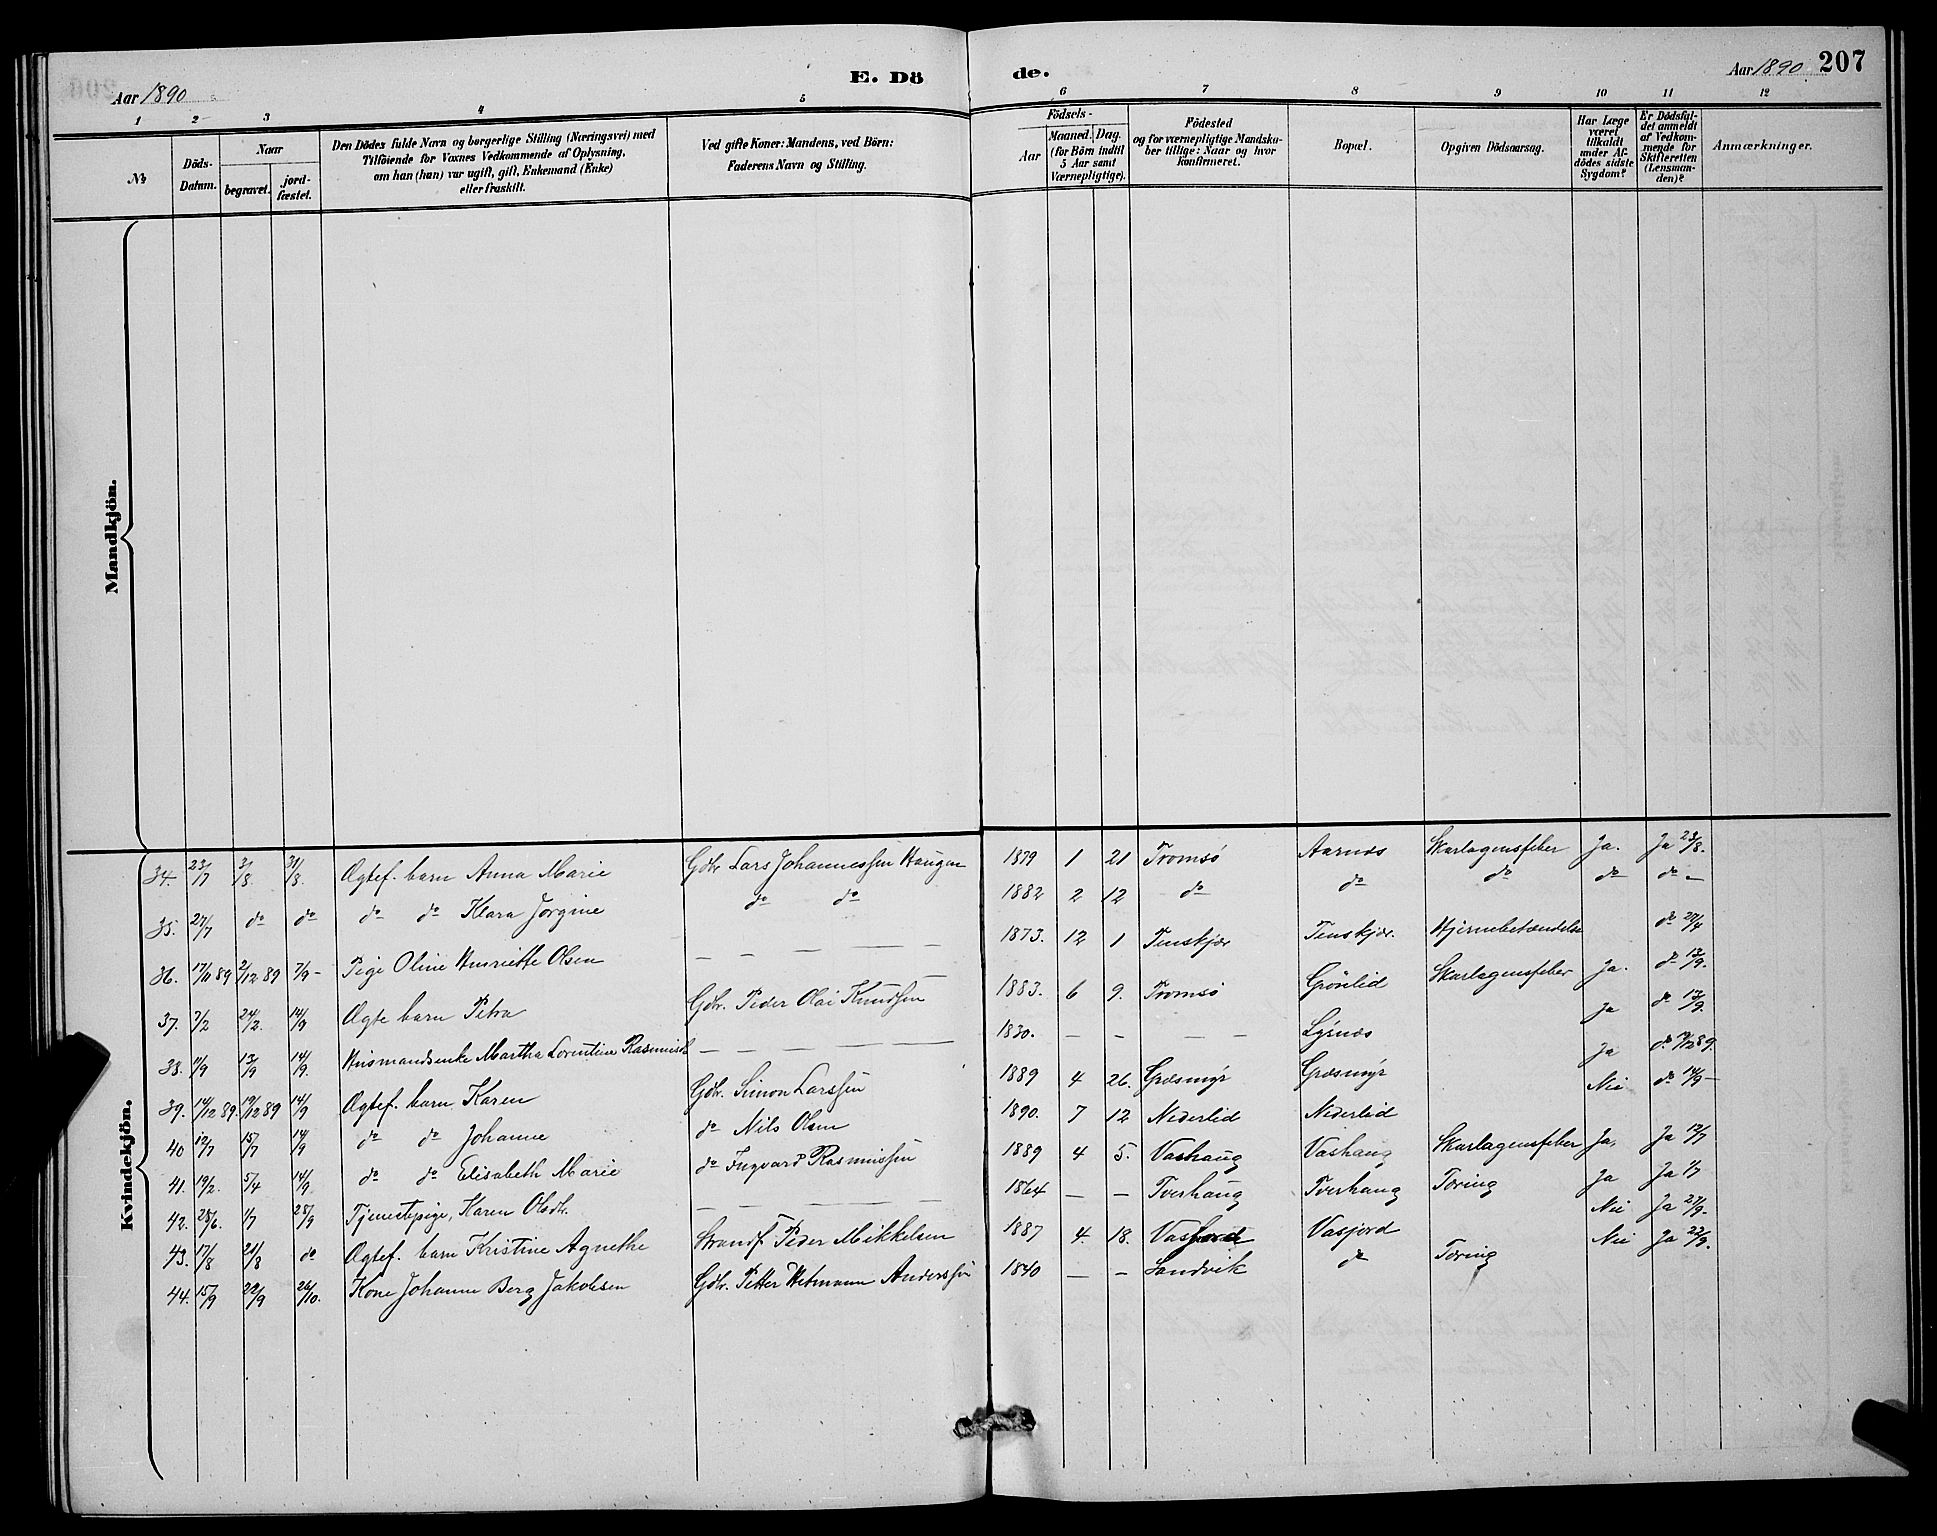 207
Aar 1890
E. Dö de.
Aar 1890
1 2 3 4 5 6 7 8 9 10 11 12
№
Döds-Datum.
Naar
begravet.
jord-fæstet.
Den Dödes fulde Navn og borgerlige Stilling (Næringsvei) med
Tilföiende for Voxnes Vedkommende af Oplysning,
om han (hun) var ugift, gift, Enkemand (Enke)
eller fraskilt.
Ved gifte Koner: Mandens, ved Börn:
Faderens Navn og Stilling.
Födsels-
Aar
Maaned. Dag.
(for Börn indtil
5 Aar samt
Værnepligtige).
Födested
og for værnepligtige Mandska-
ber tillige: Naar og hvor
konfirmeret.
Bopæl.
Opgiven Dödsaarsag.
Har Læge
været
tilkaldt
under Af-
dödes sidste
Sygdom?
Er Dödsfal-
det anmeldt
af Vedkom-
mende for
Skifteretten
(Lensman-
den)?
Anmærkninger.
Mandkjön.
Kvindekjön.
34. 23/7 3/8 31/8 Ægtef. barn Anna Marie Gdbr. Lars Johannessen Haugen 1879 1 21 Tromsö Aarnes Skarlagensfeber Ja. Ja 23/8.
35. 27/7 do do do do Klara Jorgine do do 1882 2 12 do do do do do –
36. 17/11 89 2/12 89 7/9 – Pige Oline Henriette Olsen — — — — 1873. 12 1 Tenskjær Tenskjær. Hjernebetændelse do
37. 7/2 24/2. 14/9 Ægte barn Petra Gdbr. Peder Olai Knudsen 1883. 6 9. Tromsö Grönlid Skarlagensfeber Ja. do 13/9.
38. 11/9 13/9 14/9. Husmandsenke Martha Lorentine Rasmusd. — — — — 1830. — — — — Lysnes Ja do 13/9.
39. 14/12 89. 19/12 89 14/9 Ægtef. barn Karen Gdbr. Simon Larssen 1889 4 26. Græsmyr Græsmyr Ja do 19/12 89.
40 12/7 15/7 14/9 do do Johanne do Nils Olsen 1890. 7 12 Nederlid Nederlid Nei do 14/9 –
41. 19/2. 5/4 14/9 do do Elisabeth Marie do Ingvard Rasmussen 1889 4 5. Vashaug Vashaug Skarlagensfeber Ja. Ja 12/7
42. 28/6. 1/7 28/9 Tjenestepige, Karen Olsdtr. — — — — 1864 — — Tverhaug Tverhaug Tæring Ja Ja 1/7
43. 17/8 21/8 do Ægtef. barn Kristine Agnethe Strands. Peder Mikkelsen 1887 4. 18. Vasjord Vasjord Nei Ja 27/9.
44. 15/9 22/9 26/10. Kone Johanne Berg Jakobsen Gdbr. Petter Hetmann Anderssen 1840 — — Sandvik do Tæring Nei Ja 22/9.